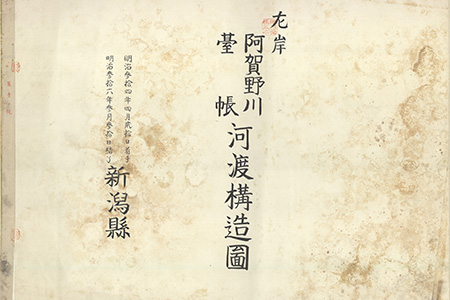 左岸
阿賀野川
臺帳
河渡構造圖
明治參拾四年四月貳拾日着手
明治參拾六年參月參拾日結了
新潟縣